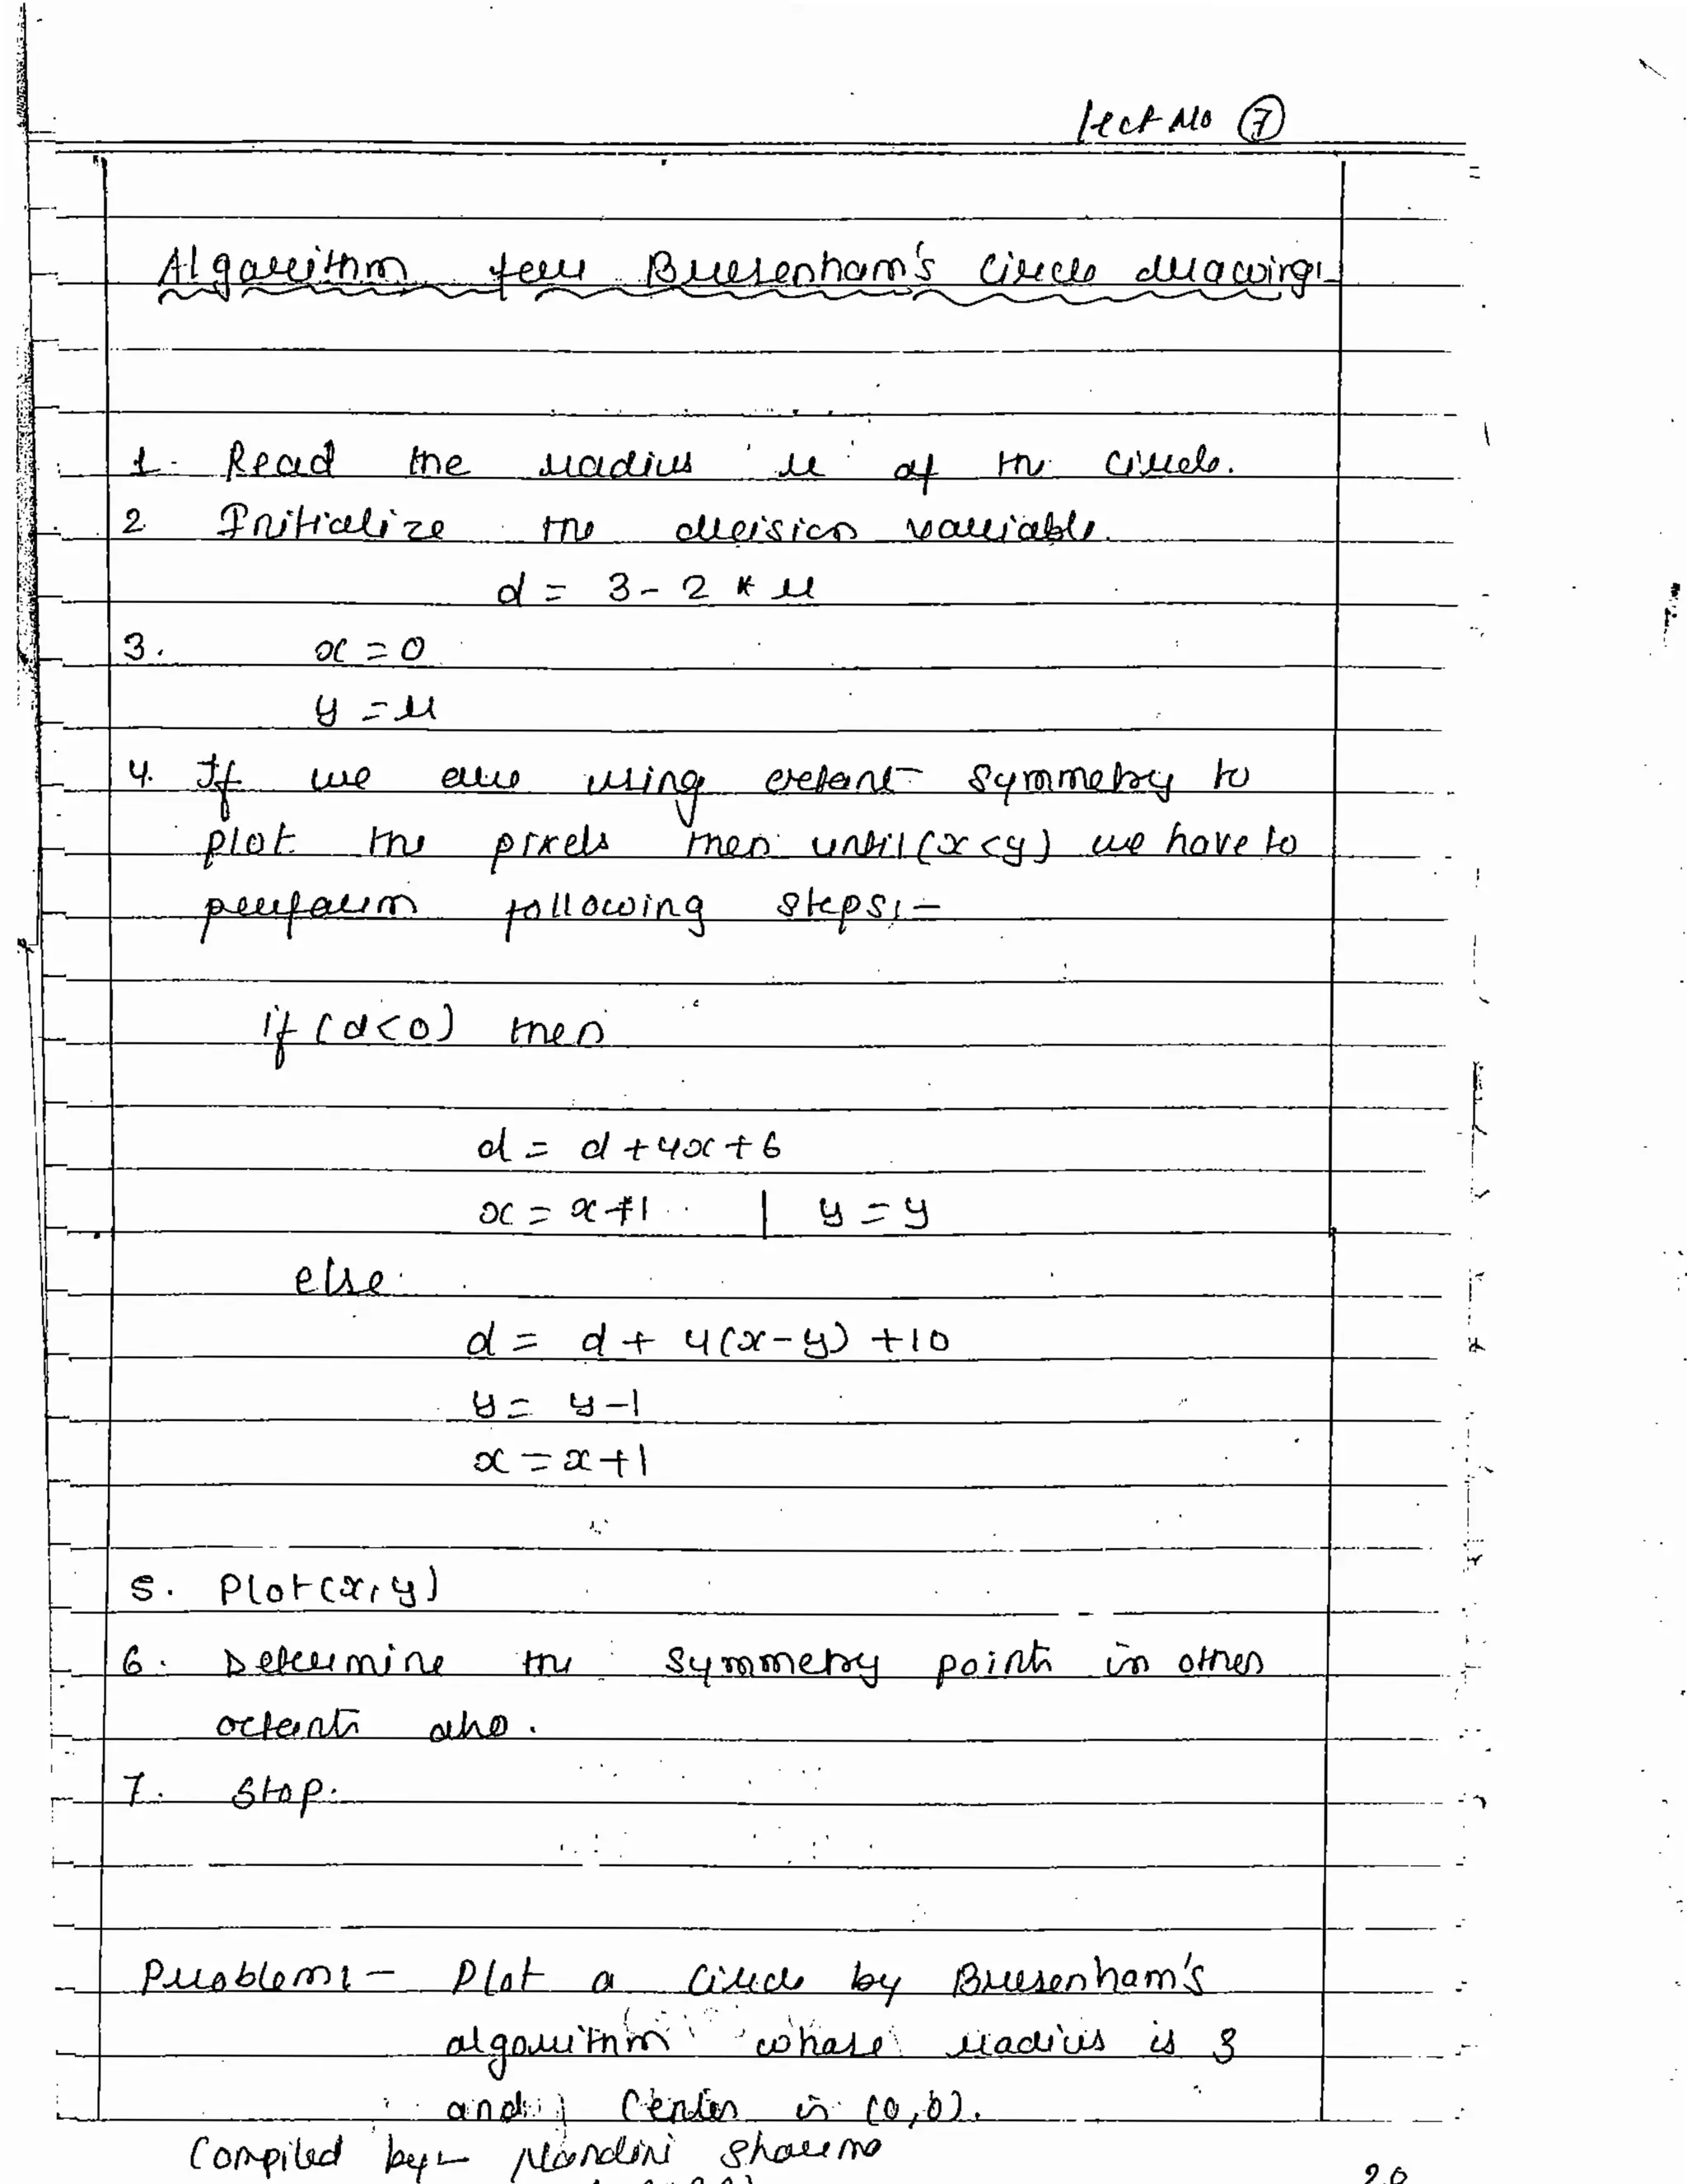 Lect No 7
Algorithm for Bresenham's Circle drawing:-
1. Read the radius r of the circle.
2 Initialize the decision variable.
d = 3 - 2 * r
3. x = 0
y = r
4. If we are using octant symmetry to
plot the pixels then until (x < y) we have to
perform following steps:-
if (d < 0) then
d = d + 4x + 6
x = x + 1 | y = y
else
d = d + 4(x - y) + 10
y = y - 1
x = x + 1
5. Plot (x, y)
6. Determine the symmetry points in other
octants also.
7. Stop.
Problem:- Plot a circle by Bresenham's
algorithm whose radius is 3
and center is (0,0).
Compiled by:- Nandini Sharma
20